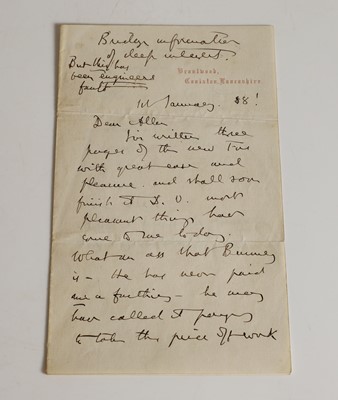 information
of deep interest.
But this has
been engineers
fault
Brantwood,
Coniston, Lancashire.
1st January 88!
Dear Allen
I've written three
pages of the new
with great ease and
pleasure and shall soon
finish it D. V. most
pleasant things have
come to me today.
What an ass that
is – He has never paid
me a farthing – he may
have called it
to take this piece of work